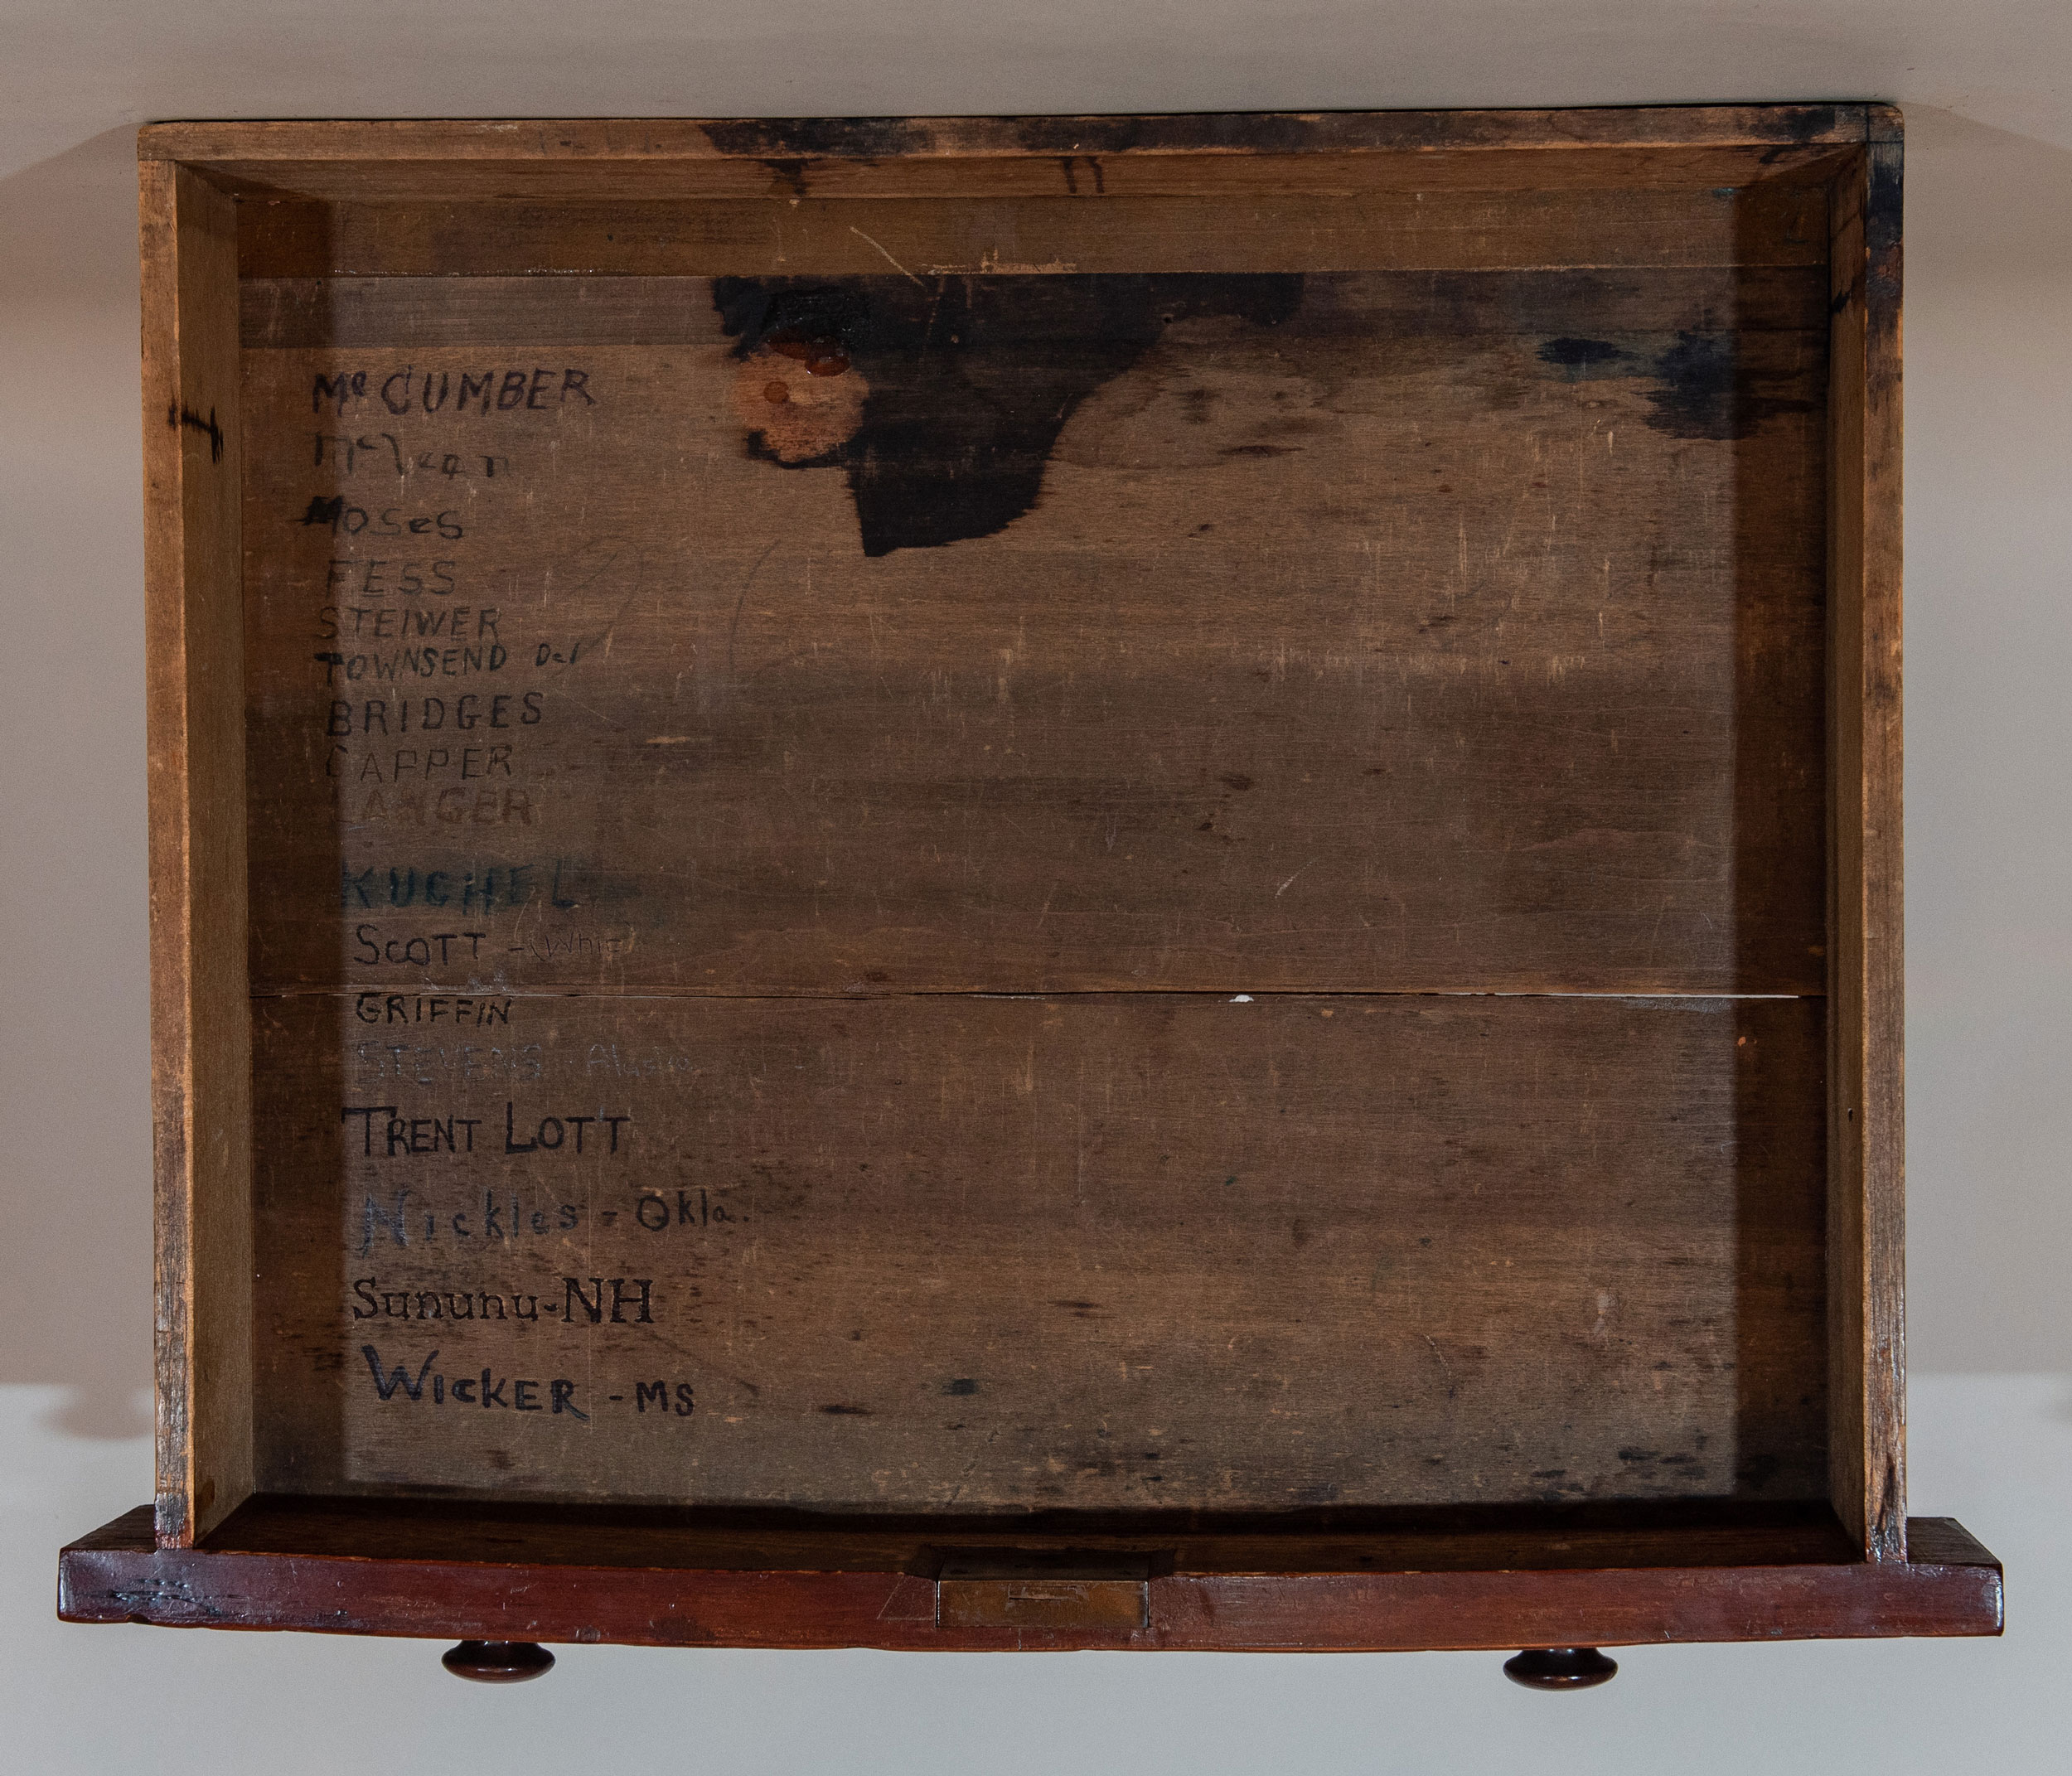 McCUMBER
McLean
Moses
FESS
STEIWER
TOWNSEND Del
BRIDGES
CAPPER
LANGER
KUCHEL
SCOTT - (Whip
GRIFFIN
STEVENS - Alaska
TRENT LOTT
Nickles - Okla.
Sununu-NH
WICKER - MS